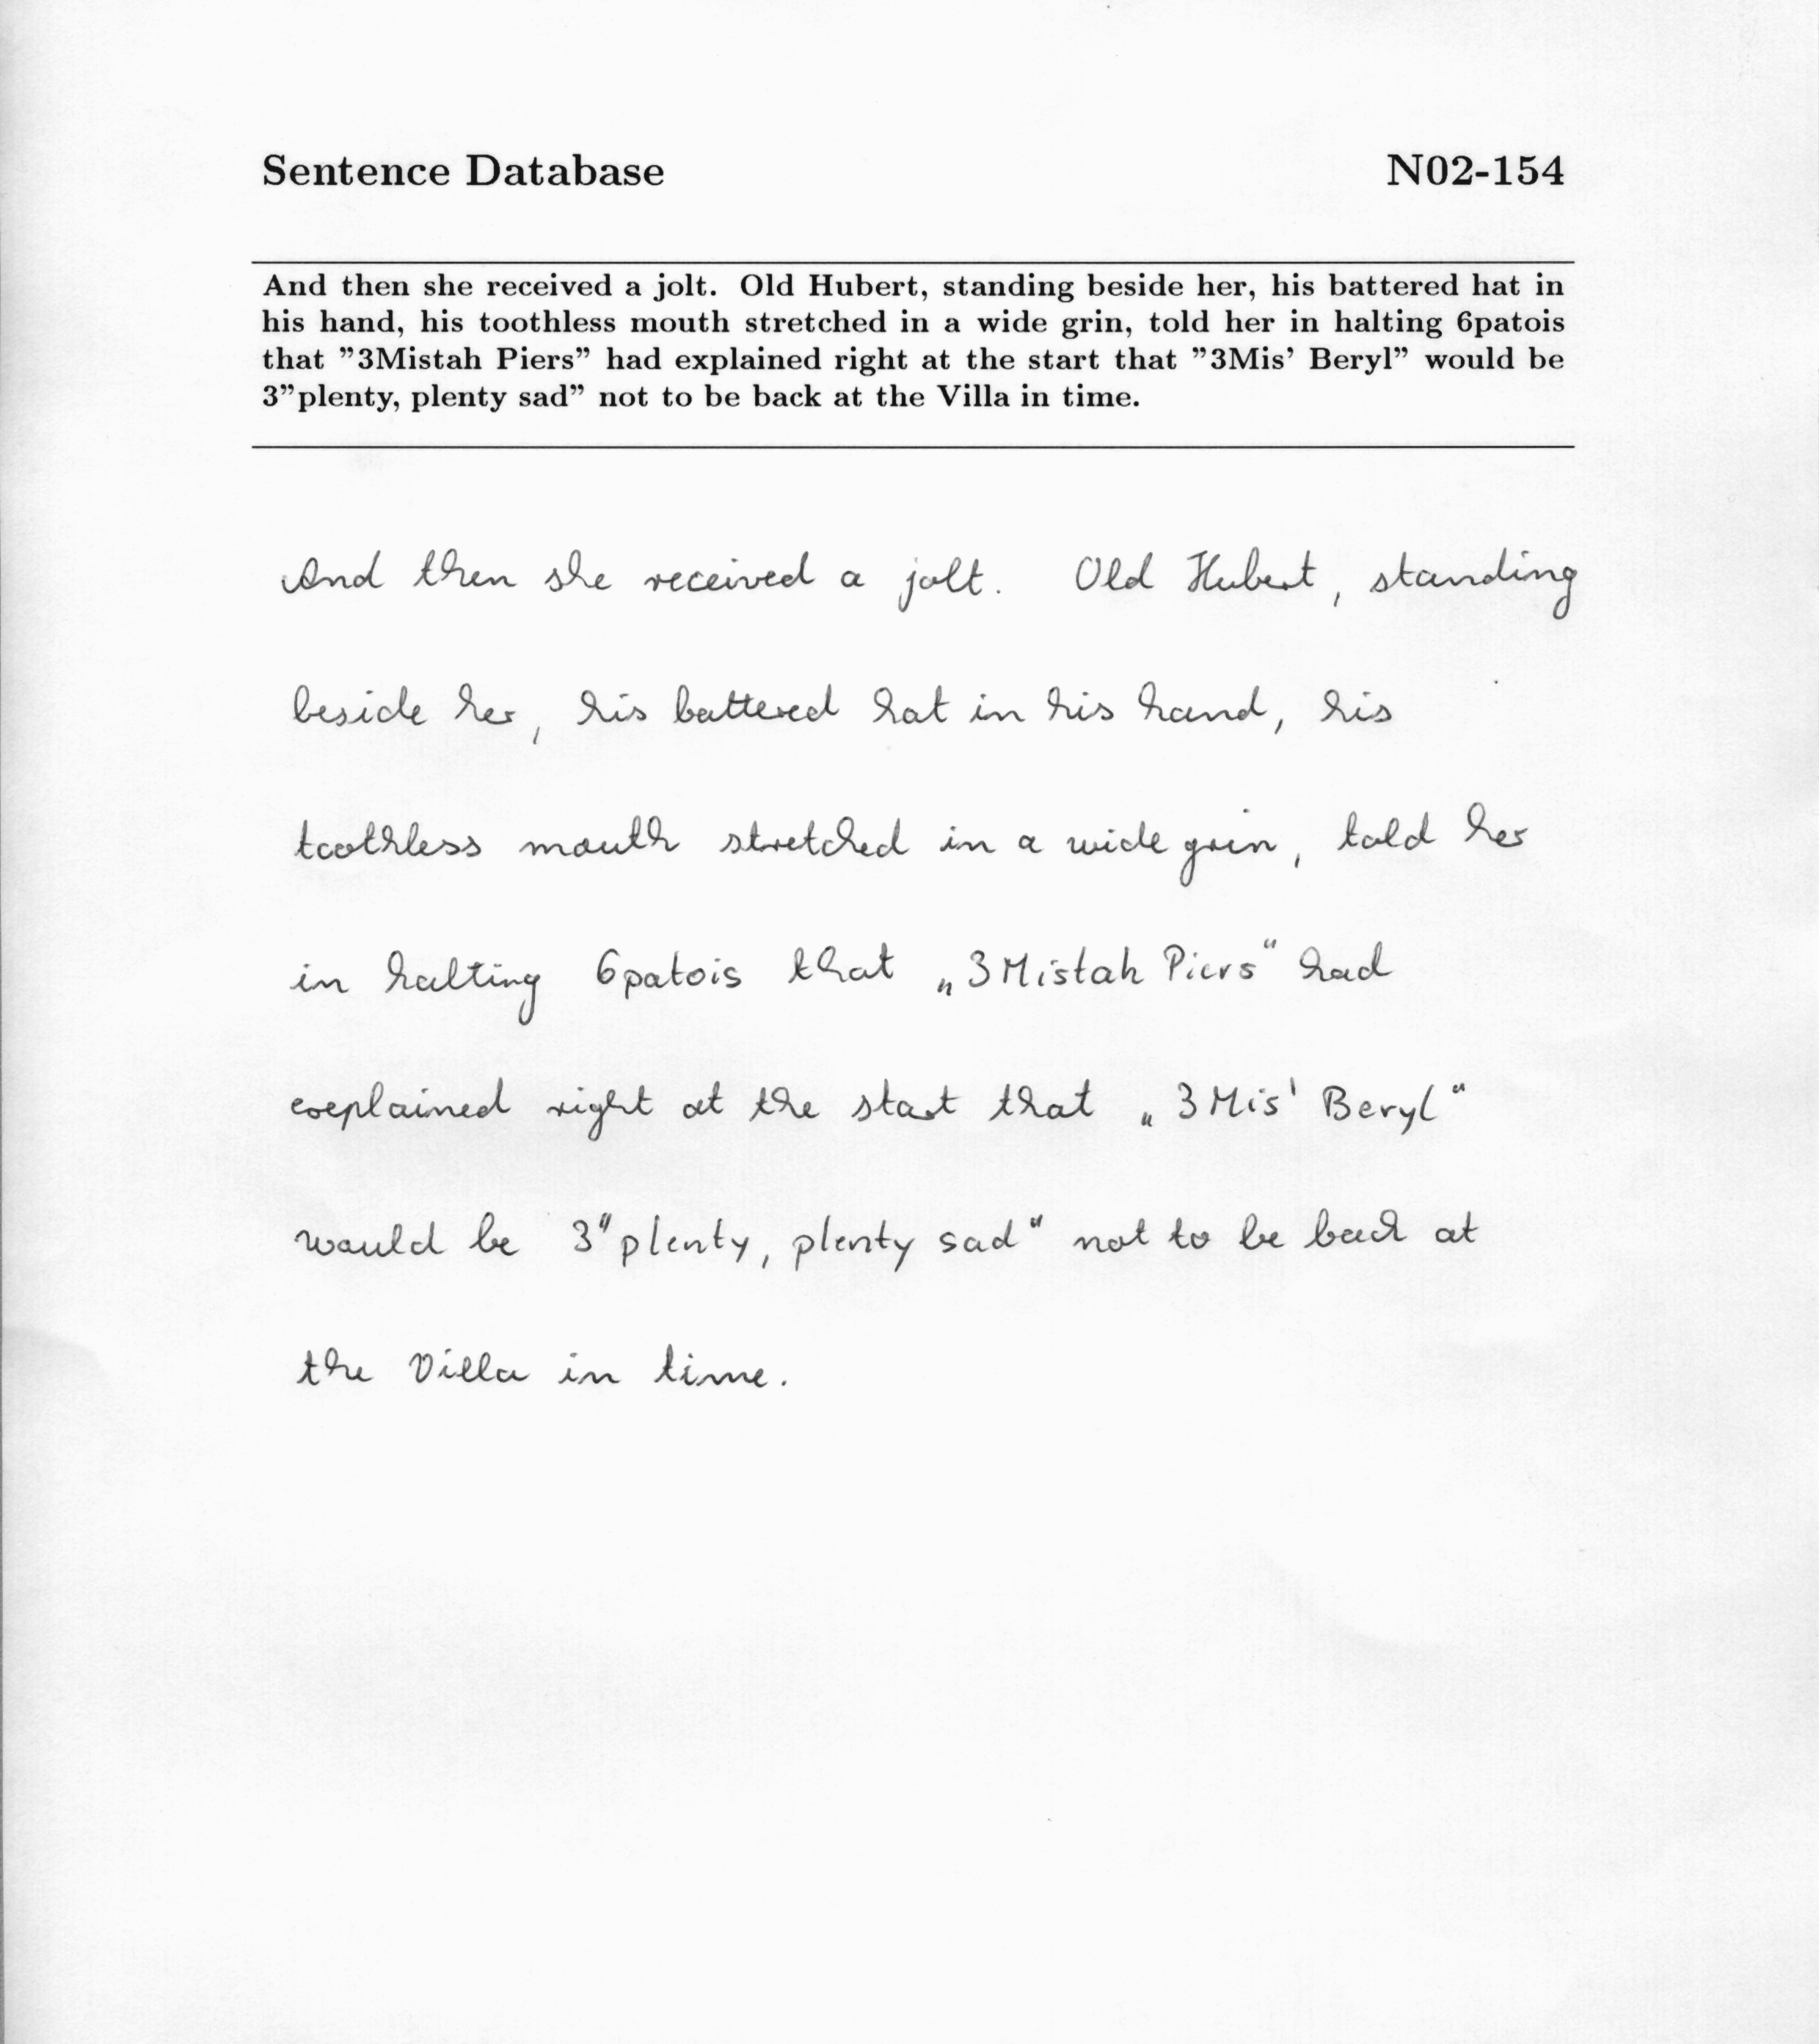 Sentence Database N02-154
And then she received a jolt. Old Hubert, standing beside her, his battered hat in
his hand, his toothless mouth stretched in a wide grin, told her in halting 6patois
that ”3Mistah Piers” had explained right at the start that ”3Mis’ Beryl” would be
3”plenty, plenty sad” not to be back at the Villa in time.
And then she received a jolt. Old Hubert, standing
beside her, his battered hat in his hand, his
toothless mouth stretched in a wide grin, told her
in halting 6patois that „3Mistah Piers“ had
explained right at the start that „3Mis' Beryl“
would be 3"plenty, plenty sad" not to be back at
the Villa in time.